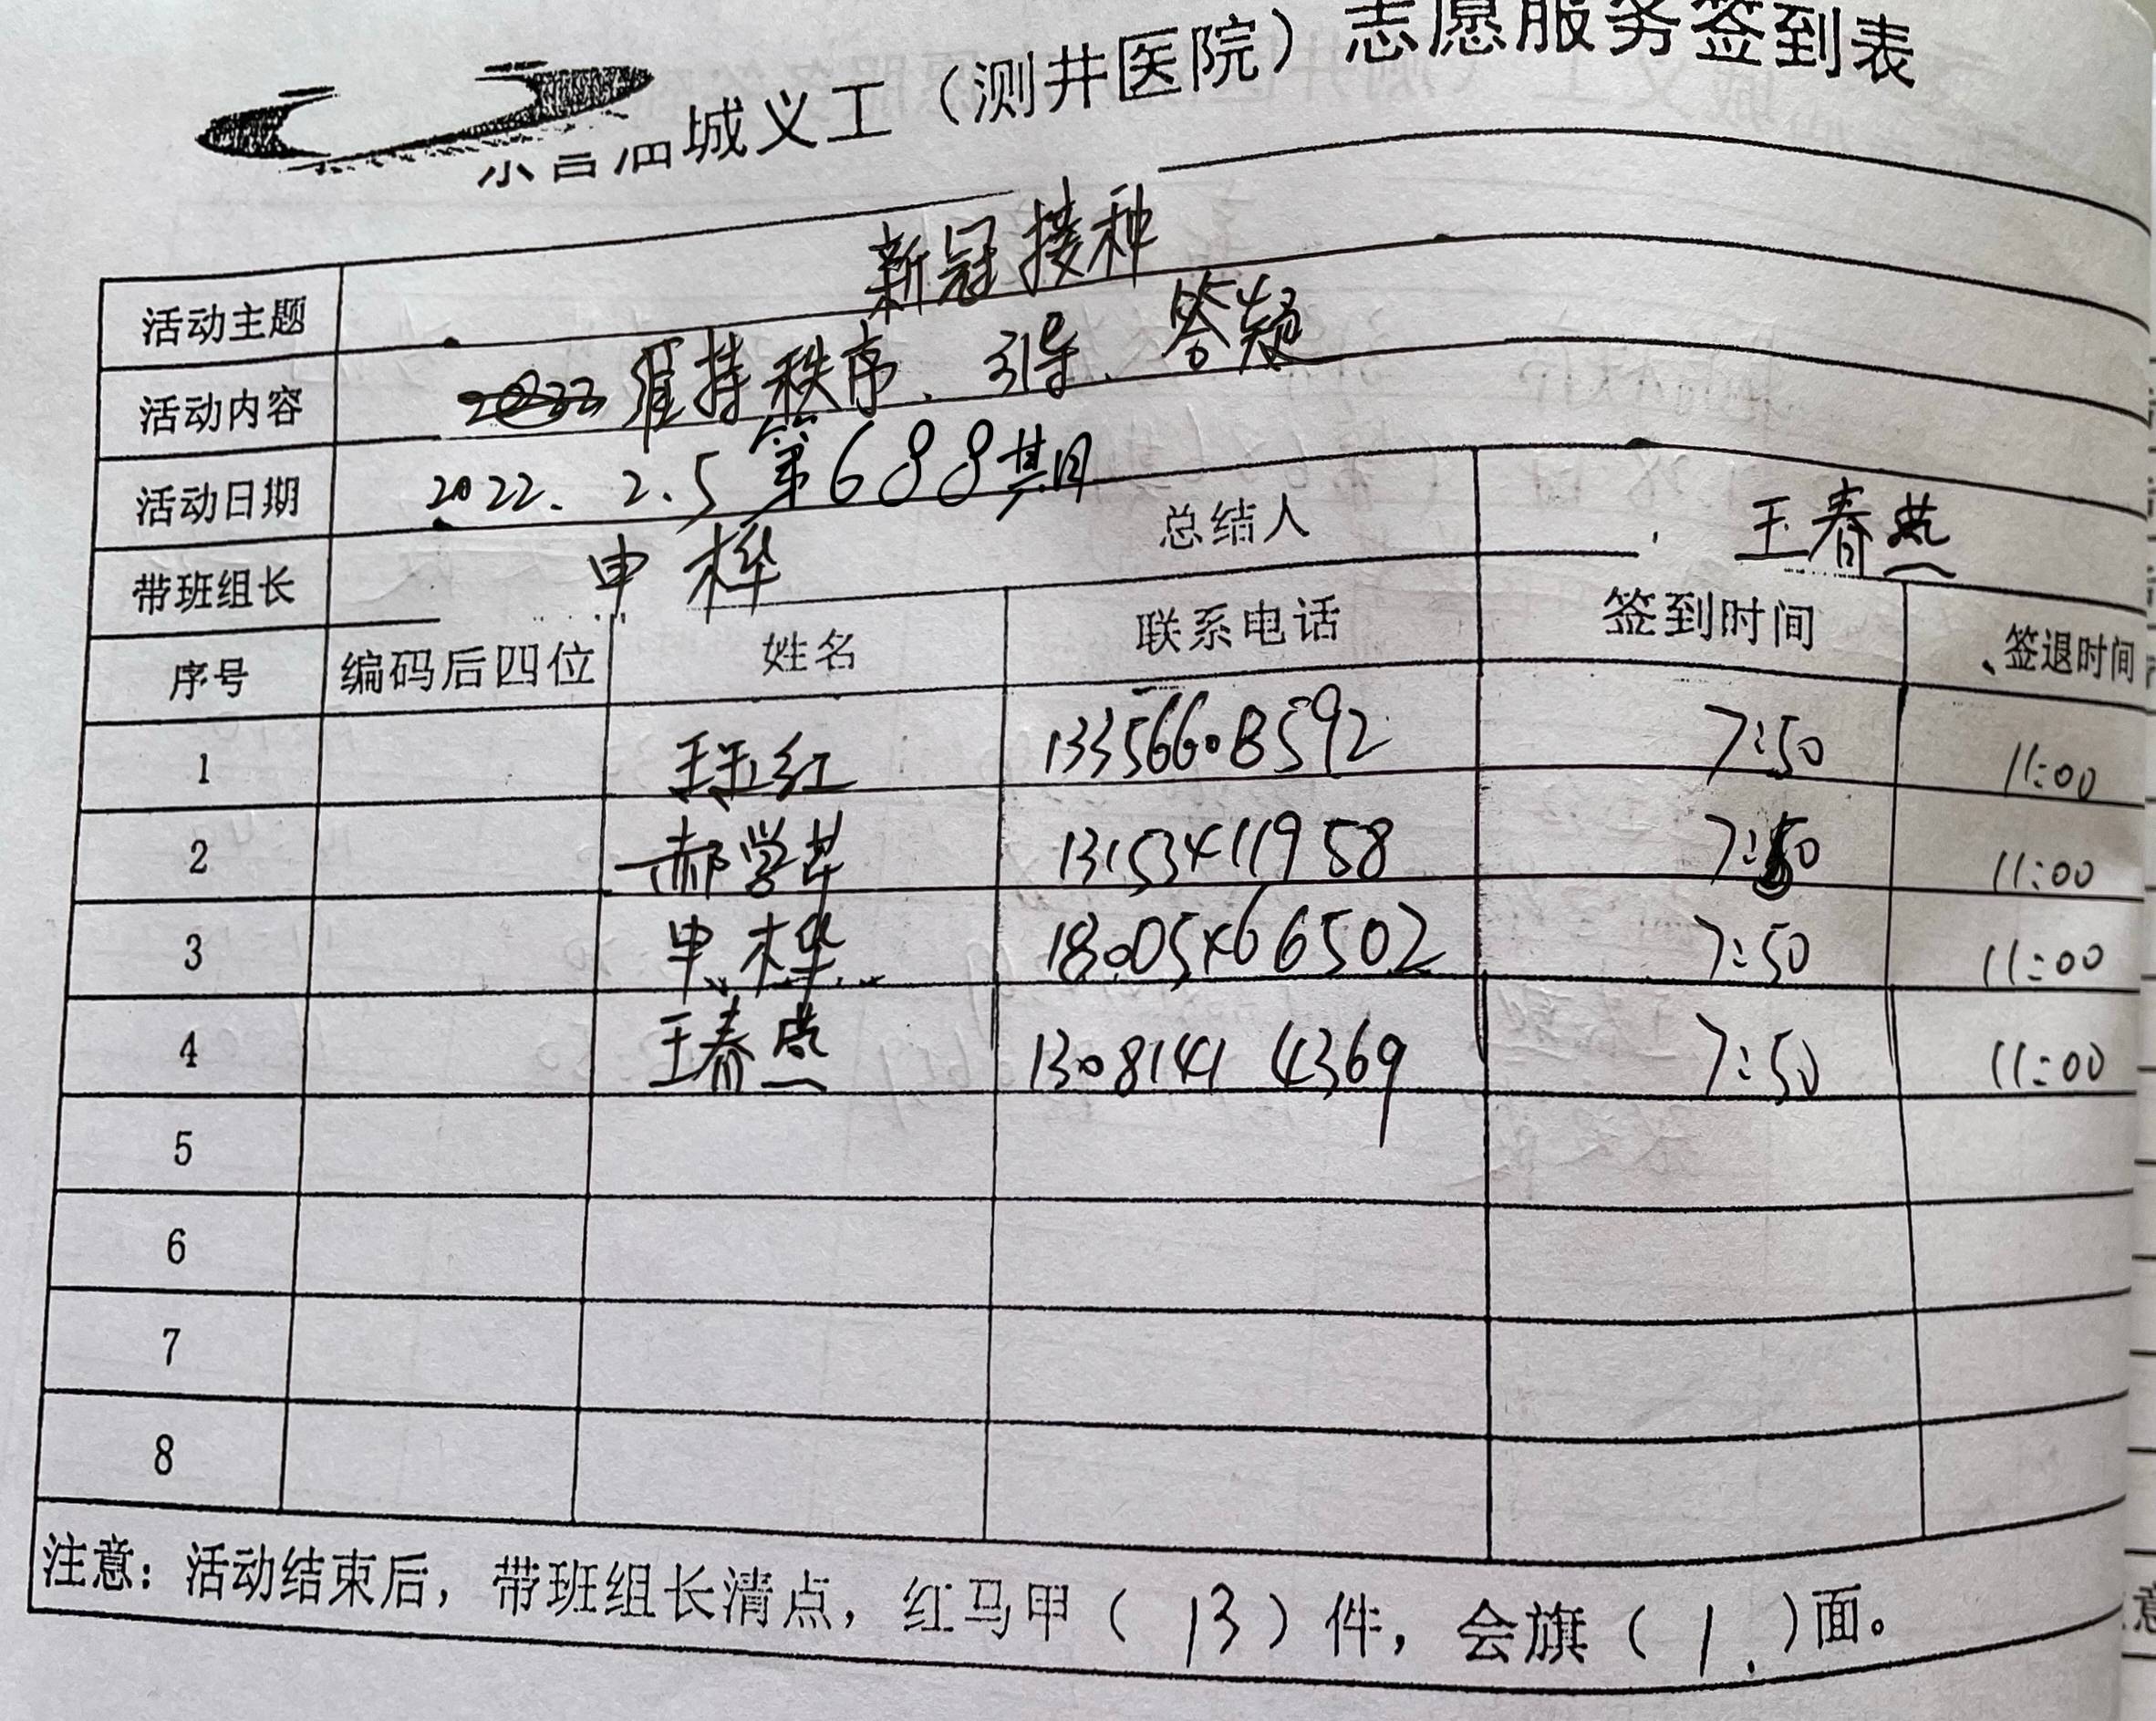 城义工（测井医院）志愿服务签到表
活动主题 新冠接种
活动内容 维持秩序、引导、答疑
活动日期 2022.2.5 第688期
带班组长 申桦 总结人 王春燕
序号 编码后四位 姓名 联系电话 签到时间 签退时间
1 王玉红 13356608592 7:50 11:00
2 郝学芹 13153411958 7:50 11:00
3 申桦 18005466502 7:50 11:00
4 王春燕 13081414369 7:50 11:00
5
6
7
8
注意：活动结束后，带班组长清点，红马甲（13）件，会旗（1）面。